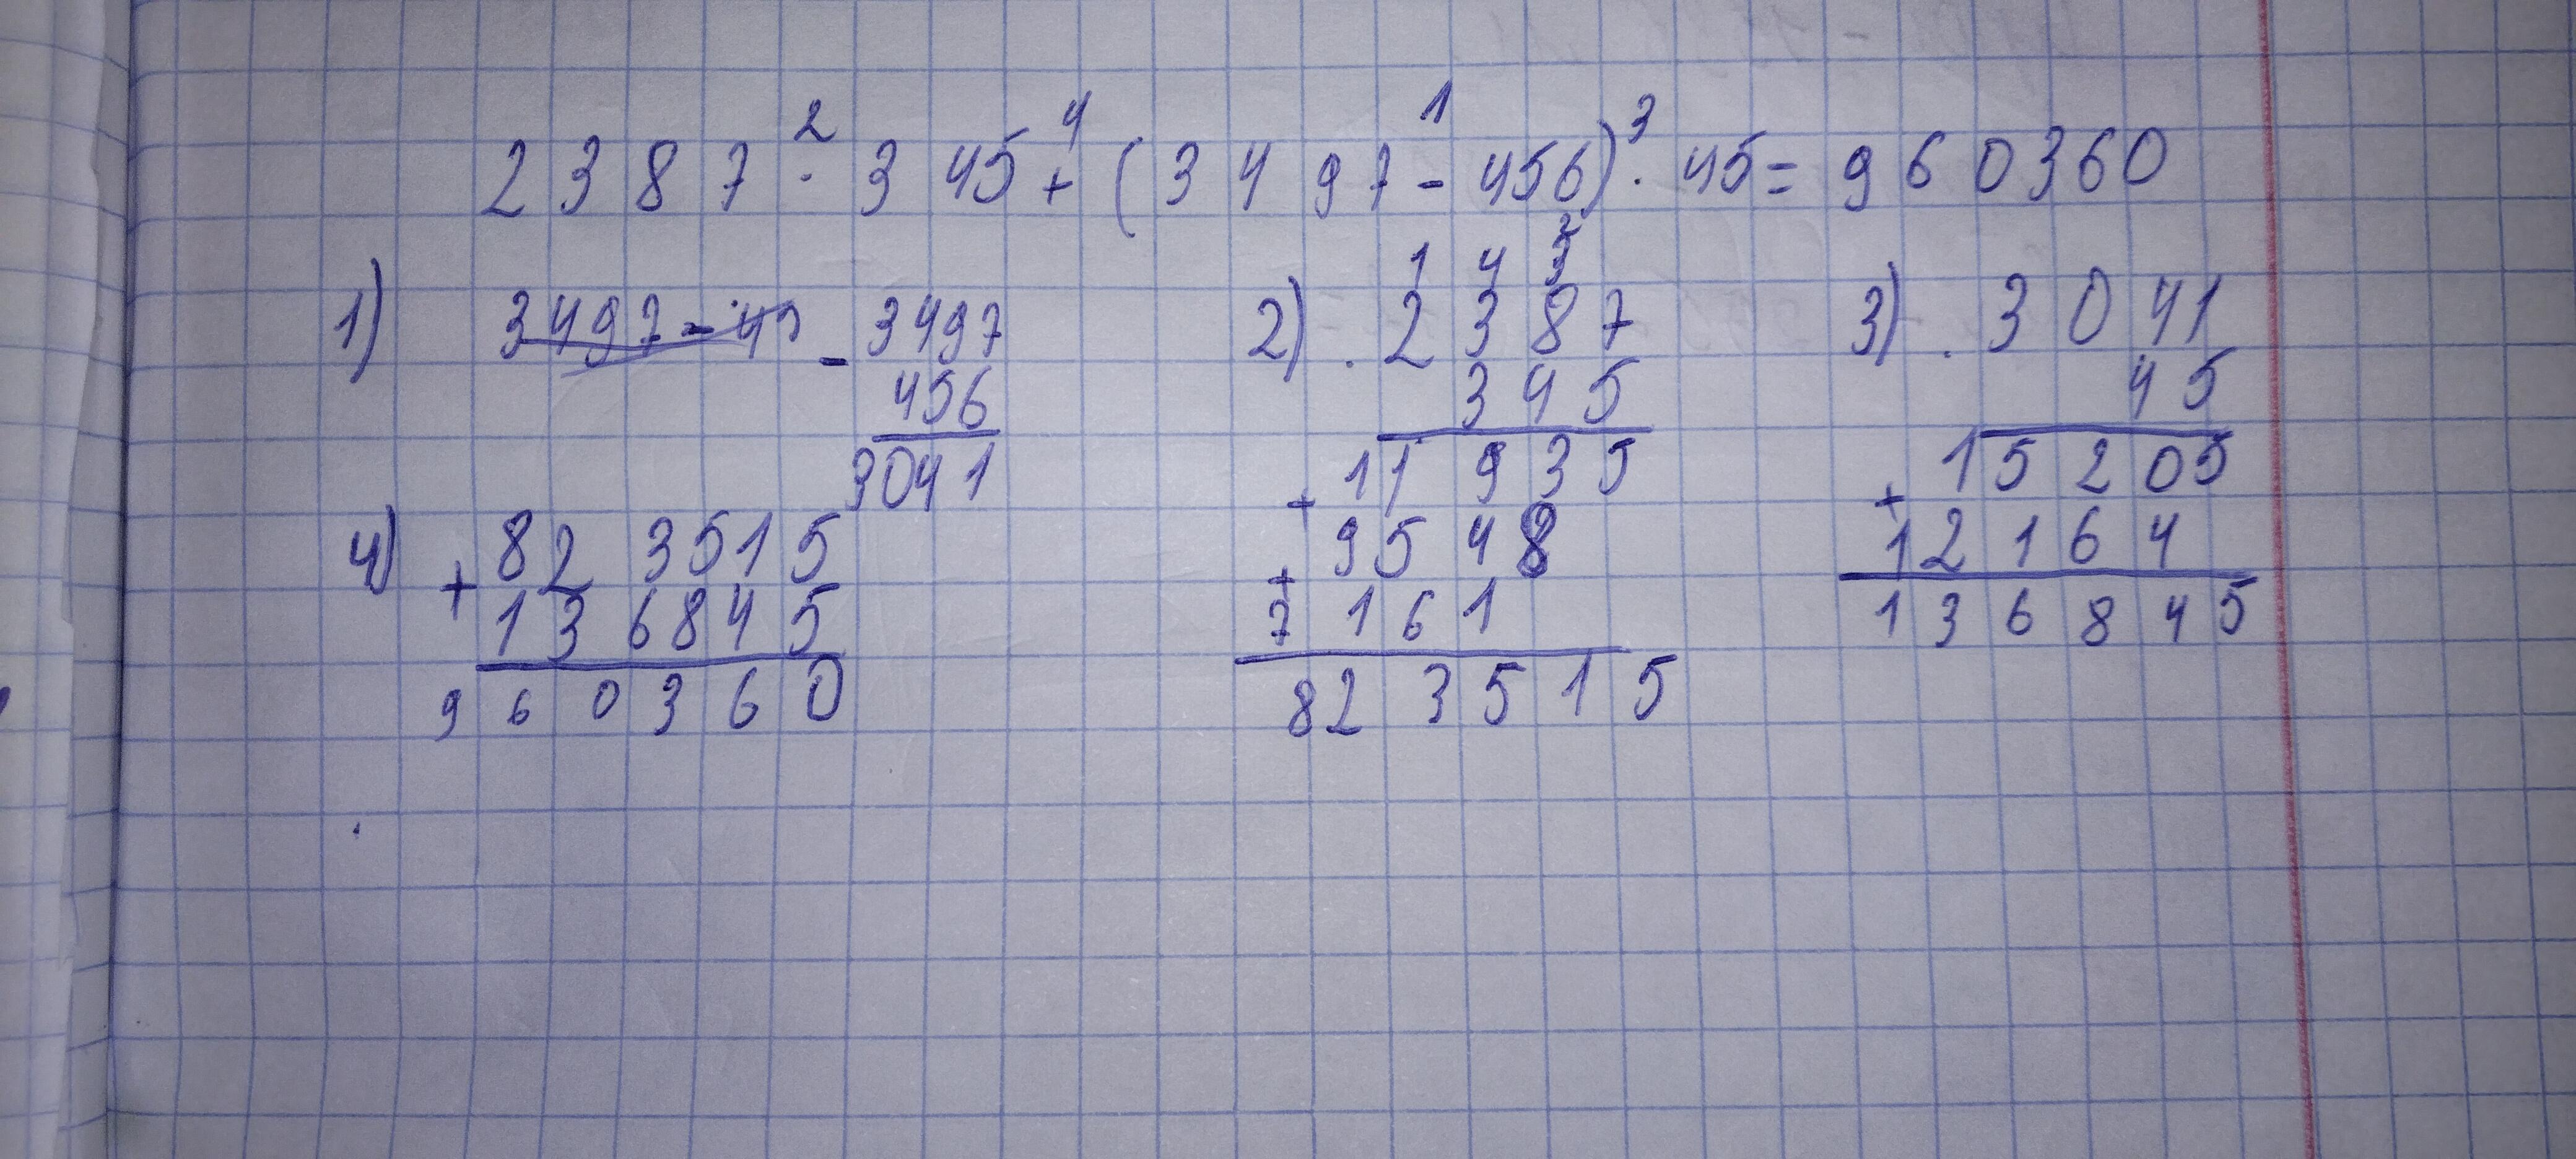 2387 · 345 + (3497 - 456) · 45 = 960360
2 4 1 3
1) 3497 - 3497
456
3041
2) · 2387
1 4
345
+ 11935
+ 9548
7161
823515
3) · 3041
45
+ 15205
12164
136845
4) + 823515
136845
960360